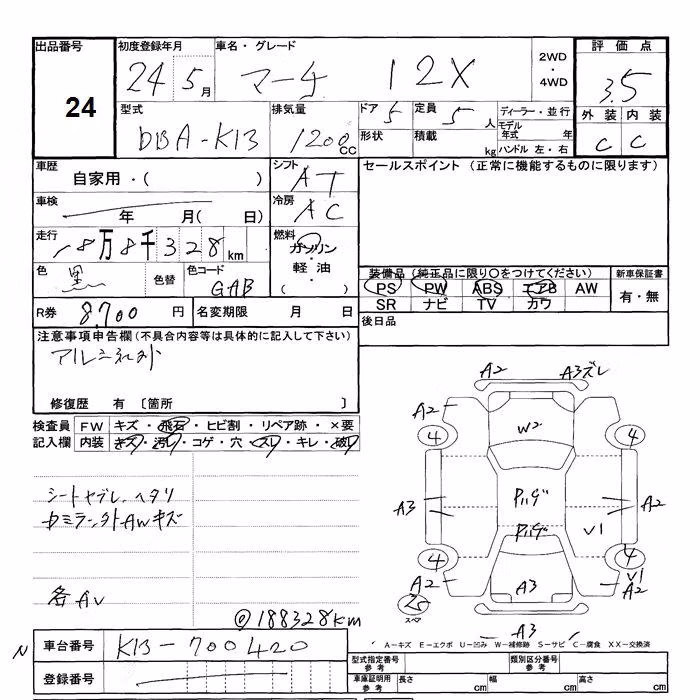 出品番号
24
初度登録年月
24 5月
車名・グレード
マーチ 12X
2WD
・
4WD
評価点
3.5
外装 内装
C C
型式
DBA-K13
排気量
1200CC
ドア 5
形状
定員 5人
積載 kg
ディーラー・並行
モデル年式 年
ハンドル 左・右
車歴
自家用・( )
シフト
AT
セールスポイント (正常に機能するものに限ります)
車検
年 月( 日)
冷房
AC
走行
18万8千328km
燃料
ガソリン
・
軽油
( )
色
黒
色替
色コード
GAB
装備品(純正品に限り○をつけてください)
PS PW ABS エアB AW
SR ナビ TV カワ
新車保証書
有・無
R券 8,700円
名変期限 月 日
後日品
注意事項申告欄(不具合内容等は具体的に記入して下さい)
修復歴 有 [箇所 ]
検査員記入欄
FW キズ・飛石・ヒビ割・リペア跡・×要
内装 キズ・汚レ・コゲ・穴・スレ・キレ・破レ
シートヤブレ、ヘタリ
各AV
@188328km
A2 A3ズレ
A2
4 4
W2
A3 A2
V1
4 4
A2 V1
A2
A3
スペア
A3
A-キズ E-エクボ U-凹み W-補修跡 S-サビ C-腐食 XX-交換済
N
車台番号 K13-700420
登録番号
型式指定番号 参考
類別区分番号 参考
車庫証明用 参考
長さ cm 幅 cm 高さ cm